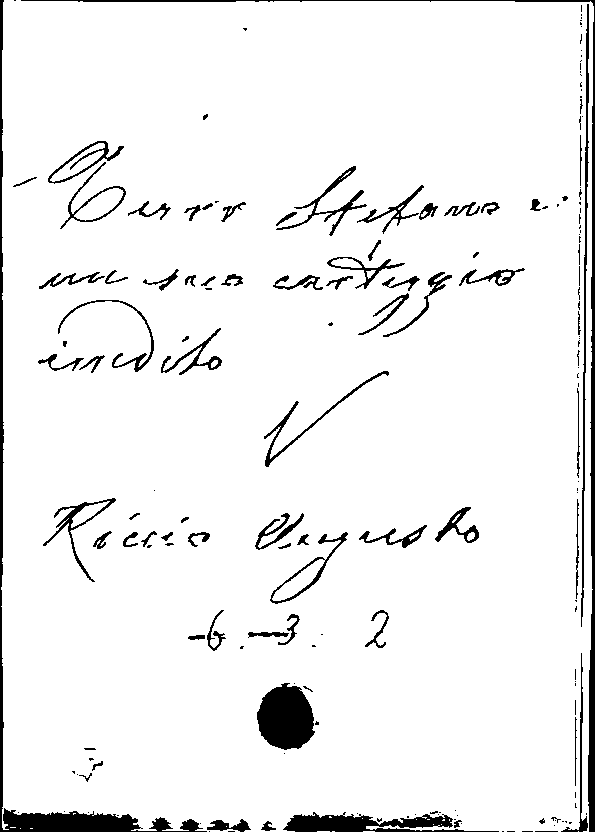 Turr Stefano e
un suo carteggio
inedito
V
Riccio Augusto
6. 3. 2